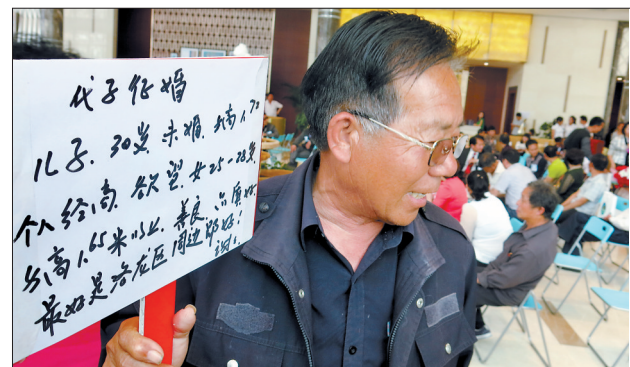 代子征婚
儿子、30岁、未婚、身高1.70
个人经商、欲望、女25-28岁、
身高1.65米以上、善良、好
最好是洛龙区周边都好!
谢!